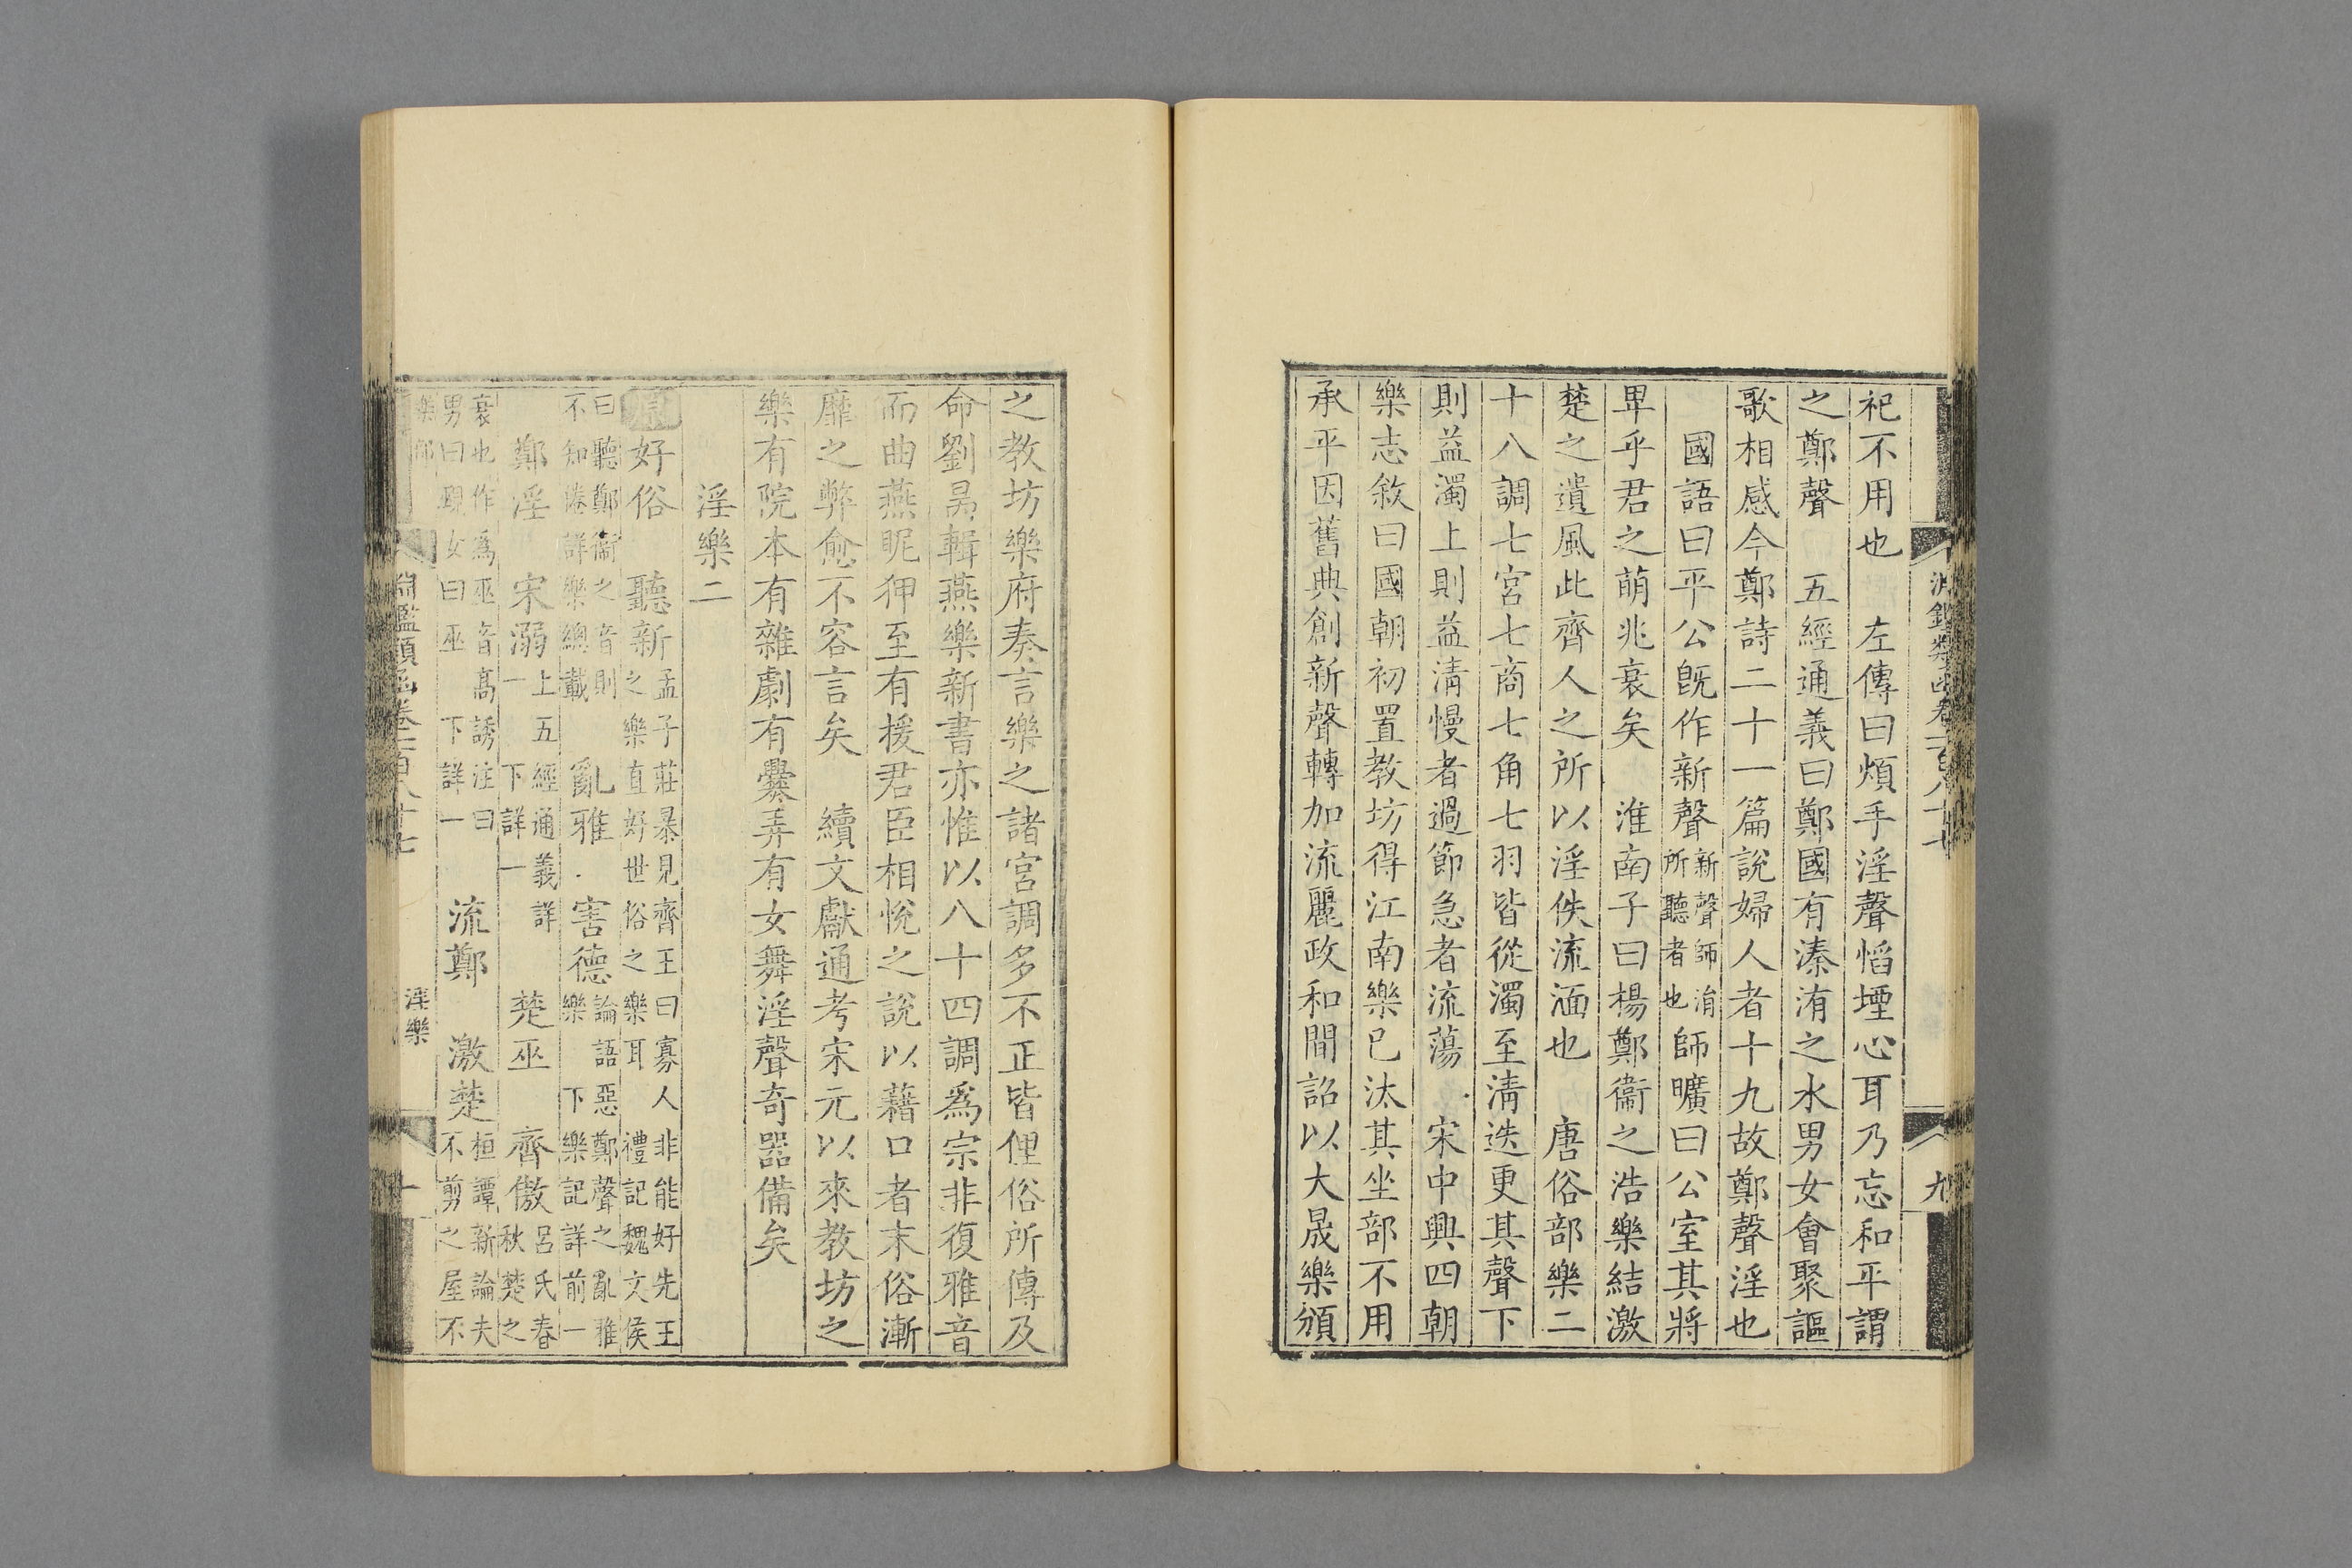 祀不用也　左傳曰煩手淫聲慆堙心耳乃忘和平謂
之鄭聲　五經通義曰鄭國有溱洧之水男女會聚謳
歌相感今鄭詩二十一篇說婦人者十九故鄭聲淫也
國語曰平公旣作新聲新聲師涓所聽者也師曠曰公室其將
卑乎君之萌兆衰矣　淮南子曰楊鄭衞之浩樂結激
楚之遺風此齊人之所以淫佚流湎也　唐俗部樂二
十八調七宮七商七角七羽皆從濁至淸迭更其聲下
則益濁上則益淸慢者過節急者流蕩　宋中興四朝
樂志敘曰國朝初置教坊得江南樂已汰其坐部不用
承平因舊典創新聲轉加流麗政和間詔以大晟樂頒
淵鑑類函卷一百八十七
九
之教坊樂府奏言樂之諸宮調多不正皆俚俗所傳及
命劉昺輯燕樂新書亦惟以八十四調爲宗非復雅音
而曲燕昵狎至有援君臣相悅之說以藉口者末俗漸
靡之弊愈不容言矣　續文獻通考宋元以來教坊之
樂有院本有雜劇有爨弄有女舞淫聲奇器備矣
淫樂二
原好俗　聽新孟子莊暴見齊王曰寡人非能好先王之樂直好世俗之樂耳　禮記魏文侯
曰聽鄭衞之音則不知倦詳樂總載　亂雅　害德論語惡鄭聲之亂雅樂　下樂記詳前一
鄭淫　宋溺上五經通義詳一　下詳一　楚巫　齊傲呂氏春秋楚之
衰也作爲巫音高誘注曰男曰覡女曰巫　下詳一　流鄭　激楚桓譚新論夫不剪之屋不
樂部
淵鑑類函卷一百八十七
淫樂
十